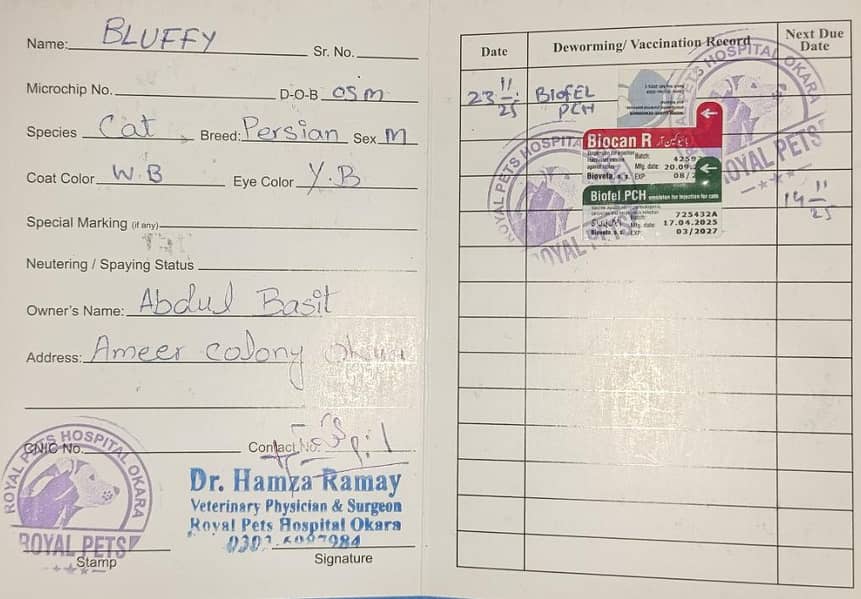 Name: BLUFFY Sr. No.
Microchip No. D-O-B 05m
Species Cat Breed: Persian Sex M
Coat Color W.B Eye Color Y.B
Special Marking (if any)
Neutering / Spaying Status
Owner's Name: Abdul Basit
Address: Ameer colony
CNIC No. Contact No.
ROYAL PETS HOSPITAL OKARA
ROYAL PETS
Stamp
Dr. Hamza Ramay
Veterinary Physician & Surgeon
Royal Pets Hospital Okara
Signature
Date Deworming/ Vaccination Record Next Due Date
23 11/25 Biofel PCH
ROYAL PETS HOSPITAL OKARA
ROYAL PETS
Biocan R
Batch: 4259
Mfg. date: 20.09.
Bioveta, a. s. EXP: 08/2
Biofel PCH emulsion for injection for cats
Batch: 725432A
Mfg. date: 17.04.2025
Bioveta, a. s. EXP: 03/2027
14 11/25
ROYAL PETS HOSPITAL
ROYAL PETS